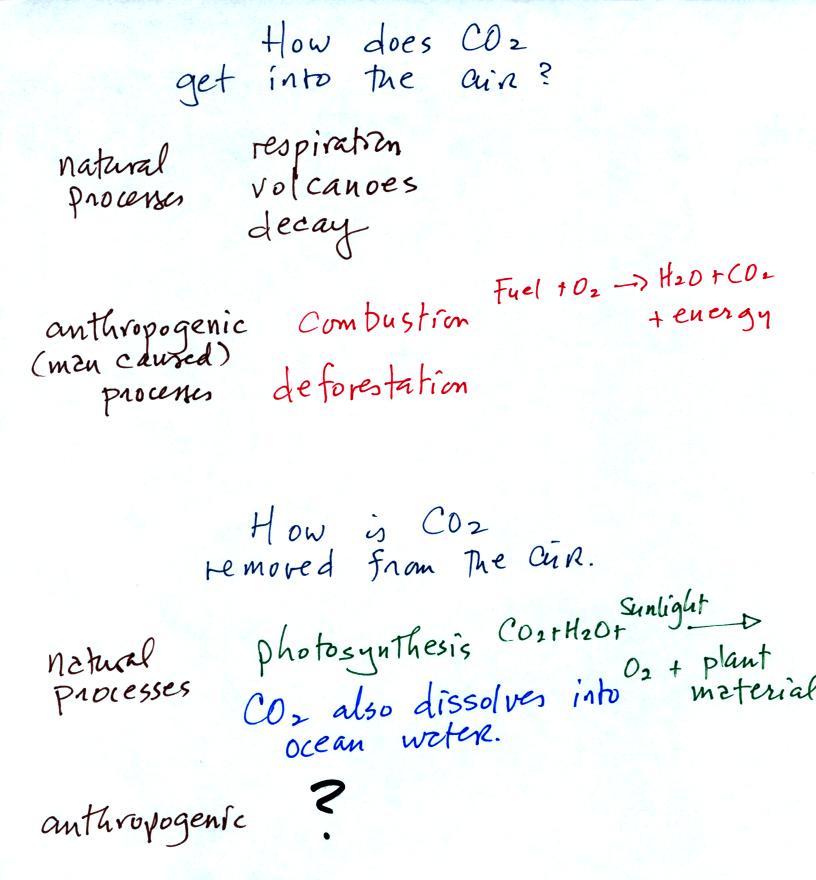 How does CO₂
get into the air?
natural
processes
respiration
volcanoes
decay
anthropogenic
(man caused)
processes
combustion
Fuel + O₂ → H₂O + CO₂
+ energy
deforestation
How is CO₂
removed from the air.
natural
processes
photosynthesis CO₂ + H₂O + Sunlight →
O₂ + plant
material
CO₂ also dissolves into
ocean water.
anthropogenic ?